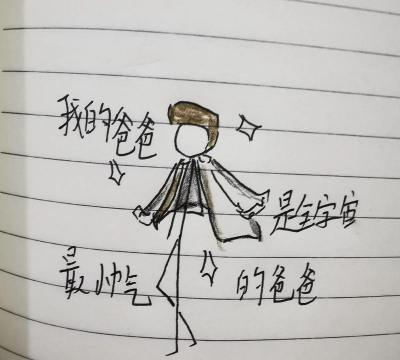 我的爸爸
是全宇宙
最帅气
的爸爸